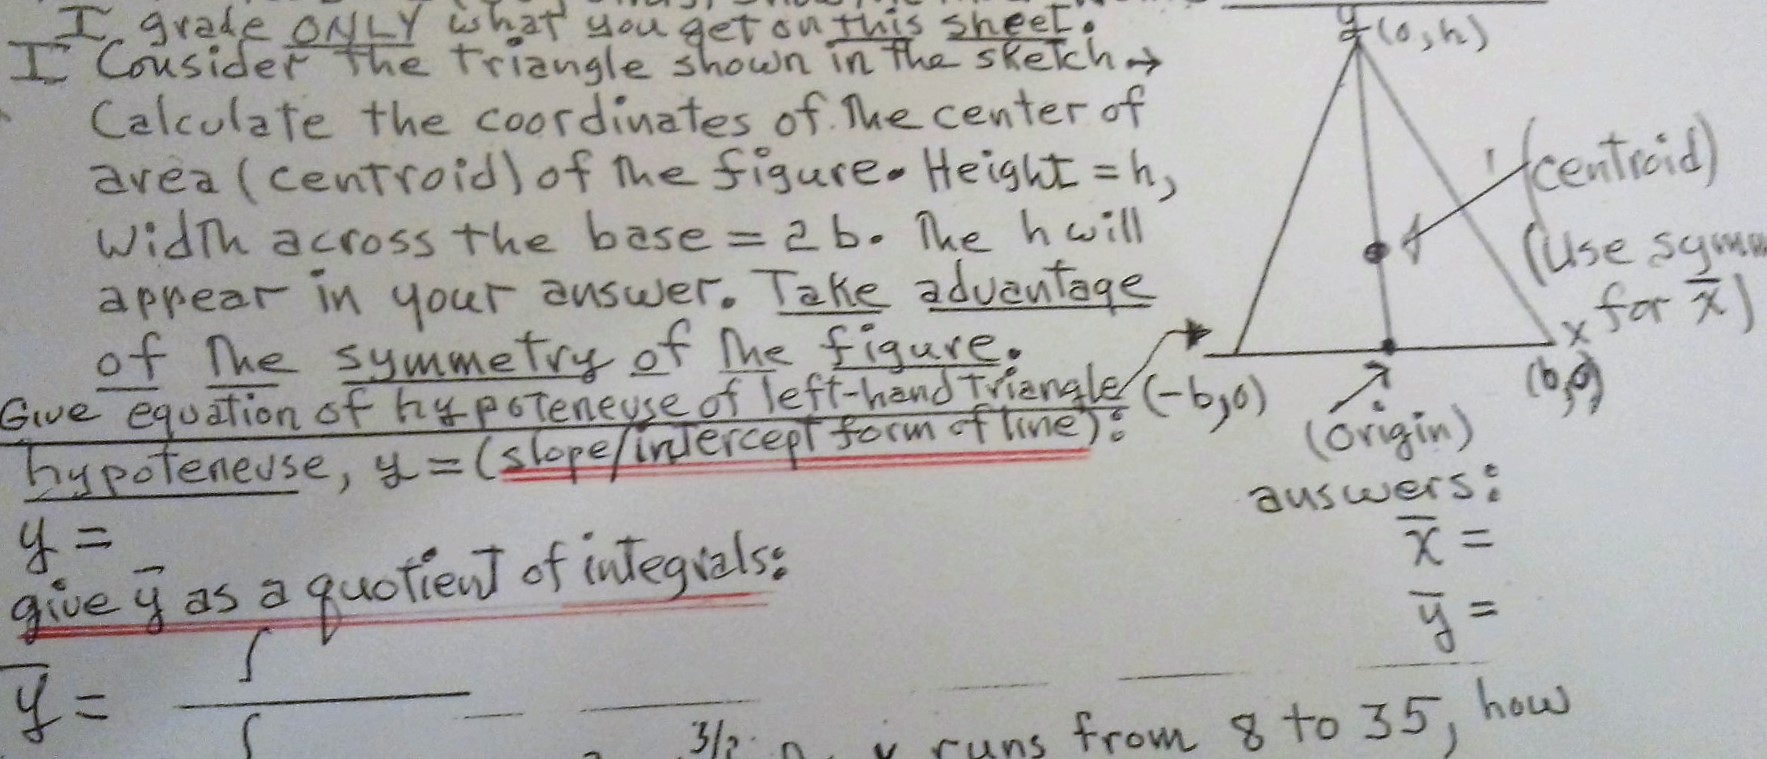 I grade ONLY what you get on this sheet.
I Consider the triangle shown in the sketch →
Calculate the coordinates of the center of
area (centroid) of the figure. Height = h,
width across the base = 2b. The h will
appear in your answer. Take advantage
of the symmetry of the figure.
Give equation of hypoteneuse of left-hand triangle
hypoteneuse, y = (slope/intercept form of line):
y =
give y̅ as a quotient of integrals:
y̅ = ∫
∫
y (0,h)
(centroid)
(use symm
for x̅)
x
(-b,0)
(b,0)
(origin)
answers:
x̅ =
y̅ =
3/2
runs from 8 to 35, how